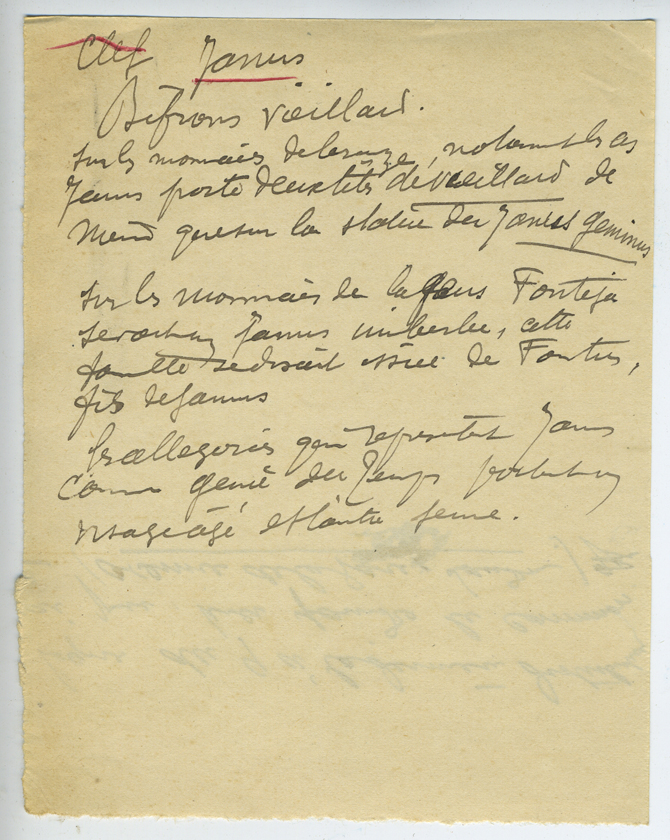 Clef Janus
Bifrons vieillard.
sur les monnaies de bronze, notamment les as
Janus porte deux têtes de vieillard de
même que sur la statue du Janus geminus
sur les monnaies de la gens Fonteja
se voit un Janus imberbe, cette
famille se disait issue de Fontus,
fils de Janus
les allegories qui representent Janus
comme genie du Temps portent un
visage âgé et l'autre jeune.